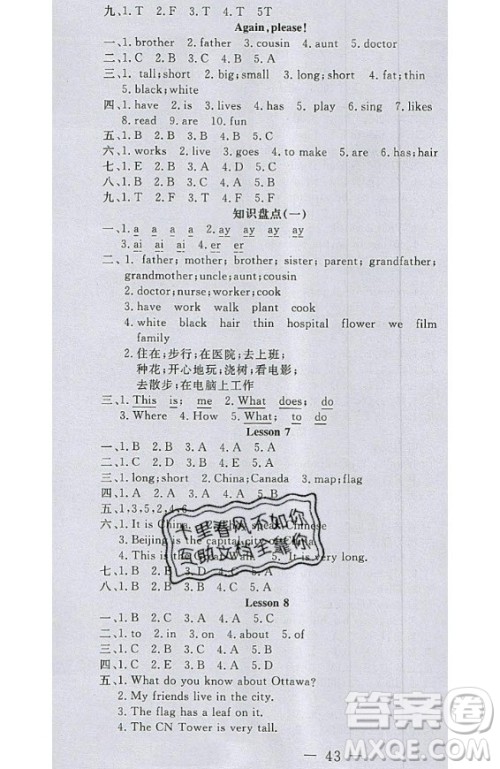 九、1. T 2. F 3. F 4. T 5T
Again, please!
一、1. brother 2. father 3. cousin 4. aunt 5. doctor
二、1. C 2. B 3. C 4. A 5. B
三、1. tall;short 2. big;small 3. long;short 4. fat;thin
5. black;white
四、1. have 2. is 3. lives 4. has 5. play 6. sing 7. likes
8. read 9. are 10. fun
五、1. B 2. B 3. A 4. B 5. C
六、1. works 2. live 3. goes 4. to make 5. are 6. has;hair
七、1. E 2. B 3. A 4. D 5. C
八、1. D 2. C 3. B 4. E 5. A
九、1. T 2. T 3. T 4. F 5. F
知识盘点(一)
一、1. a a a 2. ay ay ay
3. ai ai ai 4. er er
二、1. father; mother; brother; sister; parent; grandfather;
grandmother;uncle;aunt;cousin
2. doctor;nurse;worker;cook
3. have work walk plant cook
4. white black hair thin hospital flower we film
family
2. 住在;步行;在医院;去上班;
种花;开心地玩;浇树;看电影;
去散步;在电脑上工作
三、1. This is; me 2. What does; do
3. Where 4. How 5. What; to do
Lesson 7
一、1. B 2. B 3. A 4. A 5. A
二、1. B 2. D 3. A 4. B 5. C
三、1. long;short 2. China;Canada 3. map;flag
四、1. A 2. A 3. B 4. A 5. A
五、1,3,5,2,4,6
六、1. It is China. 2. speak Chinese
3. Beijing is the capital city of China.
4. This is the 5. It is very long.
七、1. B 2. B 3. C 4. A
八、1. B 2. C 3. A 4. D 5. E
Lesson 8
一、1. B 2. C 3. A 4. A 5. C
二、1. to 2. in 3. on 4. about 5. of
三、1. C 2. D 3. A 4. B 5. C
四、1. C 2. E 3. A 4. D 5. B
五、1. What do you know about Ottawa?
2. My friends live in the city.
3. The flag has a leaf on it.
4. The CN Tower is very tall.
— 43 —
十里春风不如你
互助文档全靠你
答案圈
MXQE.COM